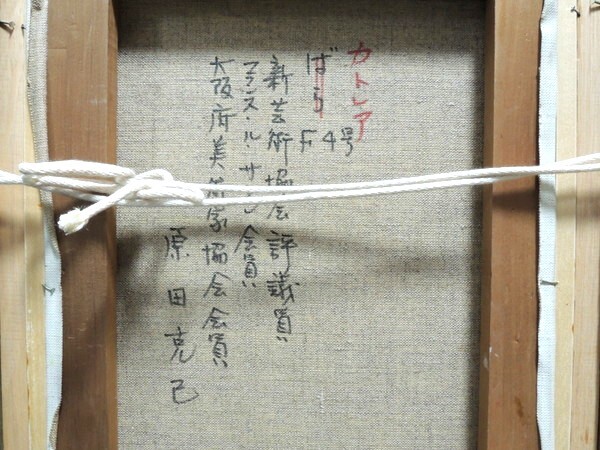 カトレア
ばら F4号
新芸術協会 評議員
フランス・ル・サロン会員
大阪府美術家協会会員
原田克己